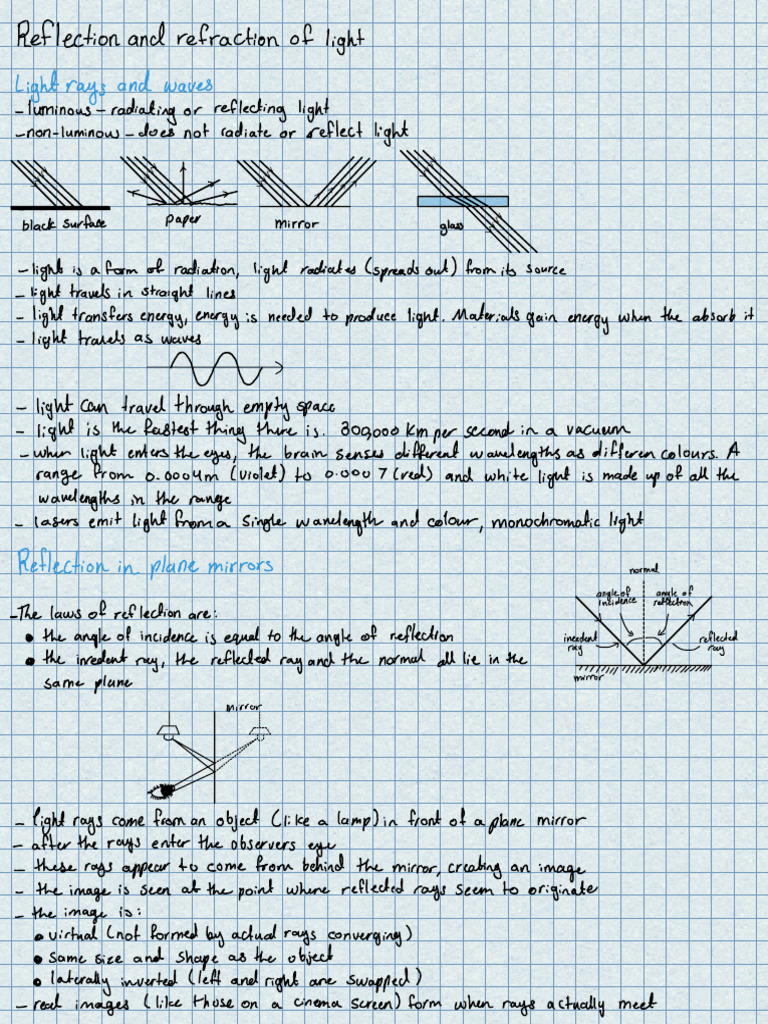 Reflection and refraction of light
Light rays and waves
- luminous - radiating or reflecting light
- non-luminous - does not radiate or reflect light
black surface
paper
mirror
glass
- light is a form of radiation, light radiates (spreads out) from its source
- light travels in straight lines
- light transfers energy, energy is needed to produce light. Materials gain energy when the absorb it
- light travels as waves
- light can travel through empty space
- light is the fastest thing there is. 300,000 km per second in a vacuum
- when light enters the eyes, the brain senses different wavelengths as differen colours. A
range from 0.0004m (violet) to 0.0007 (red) and white light is made up of all the
wavelengths in the range
- lasers emit light from a single wavelength and colour, monochromatic light
Reflection in plane mirrors
normal
angle of incidence
angle of reflection
incedent ray
reflected ray
mirror
- The laws of reflection are:
• the angle of incidence is equal to the angle of reflection
• the inredent ray, the reflected ray and the normal all lie in the
same plane
mirror
- light rays come from an object (like a lamp) in front of a plane mirror
- after the rays enter the observers eye
- these rays appear to come from behind the mirror, creating an image
- the image is seen at the point where reflected rays seem to originate
- the image is:
• virtual (not formed by actual rays converging)
• same size and shape as the object
• laterally inverted (left and right are swapped)
- real images (like those on a cinema screen) form when rays actually meet